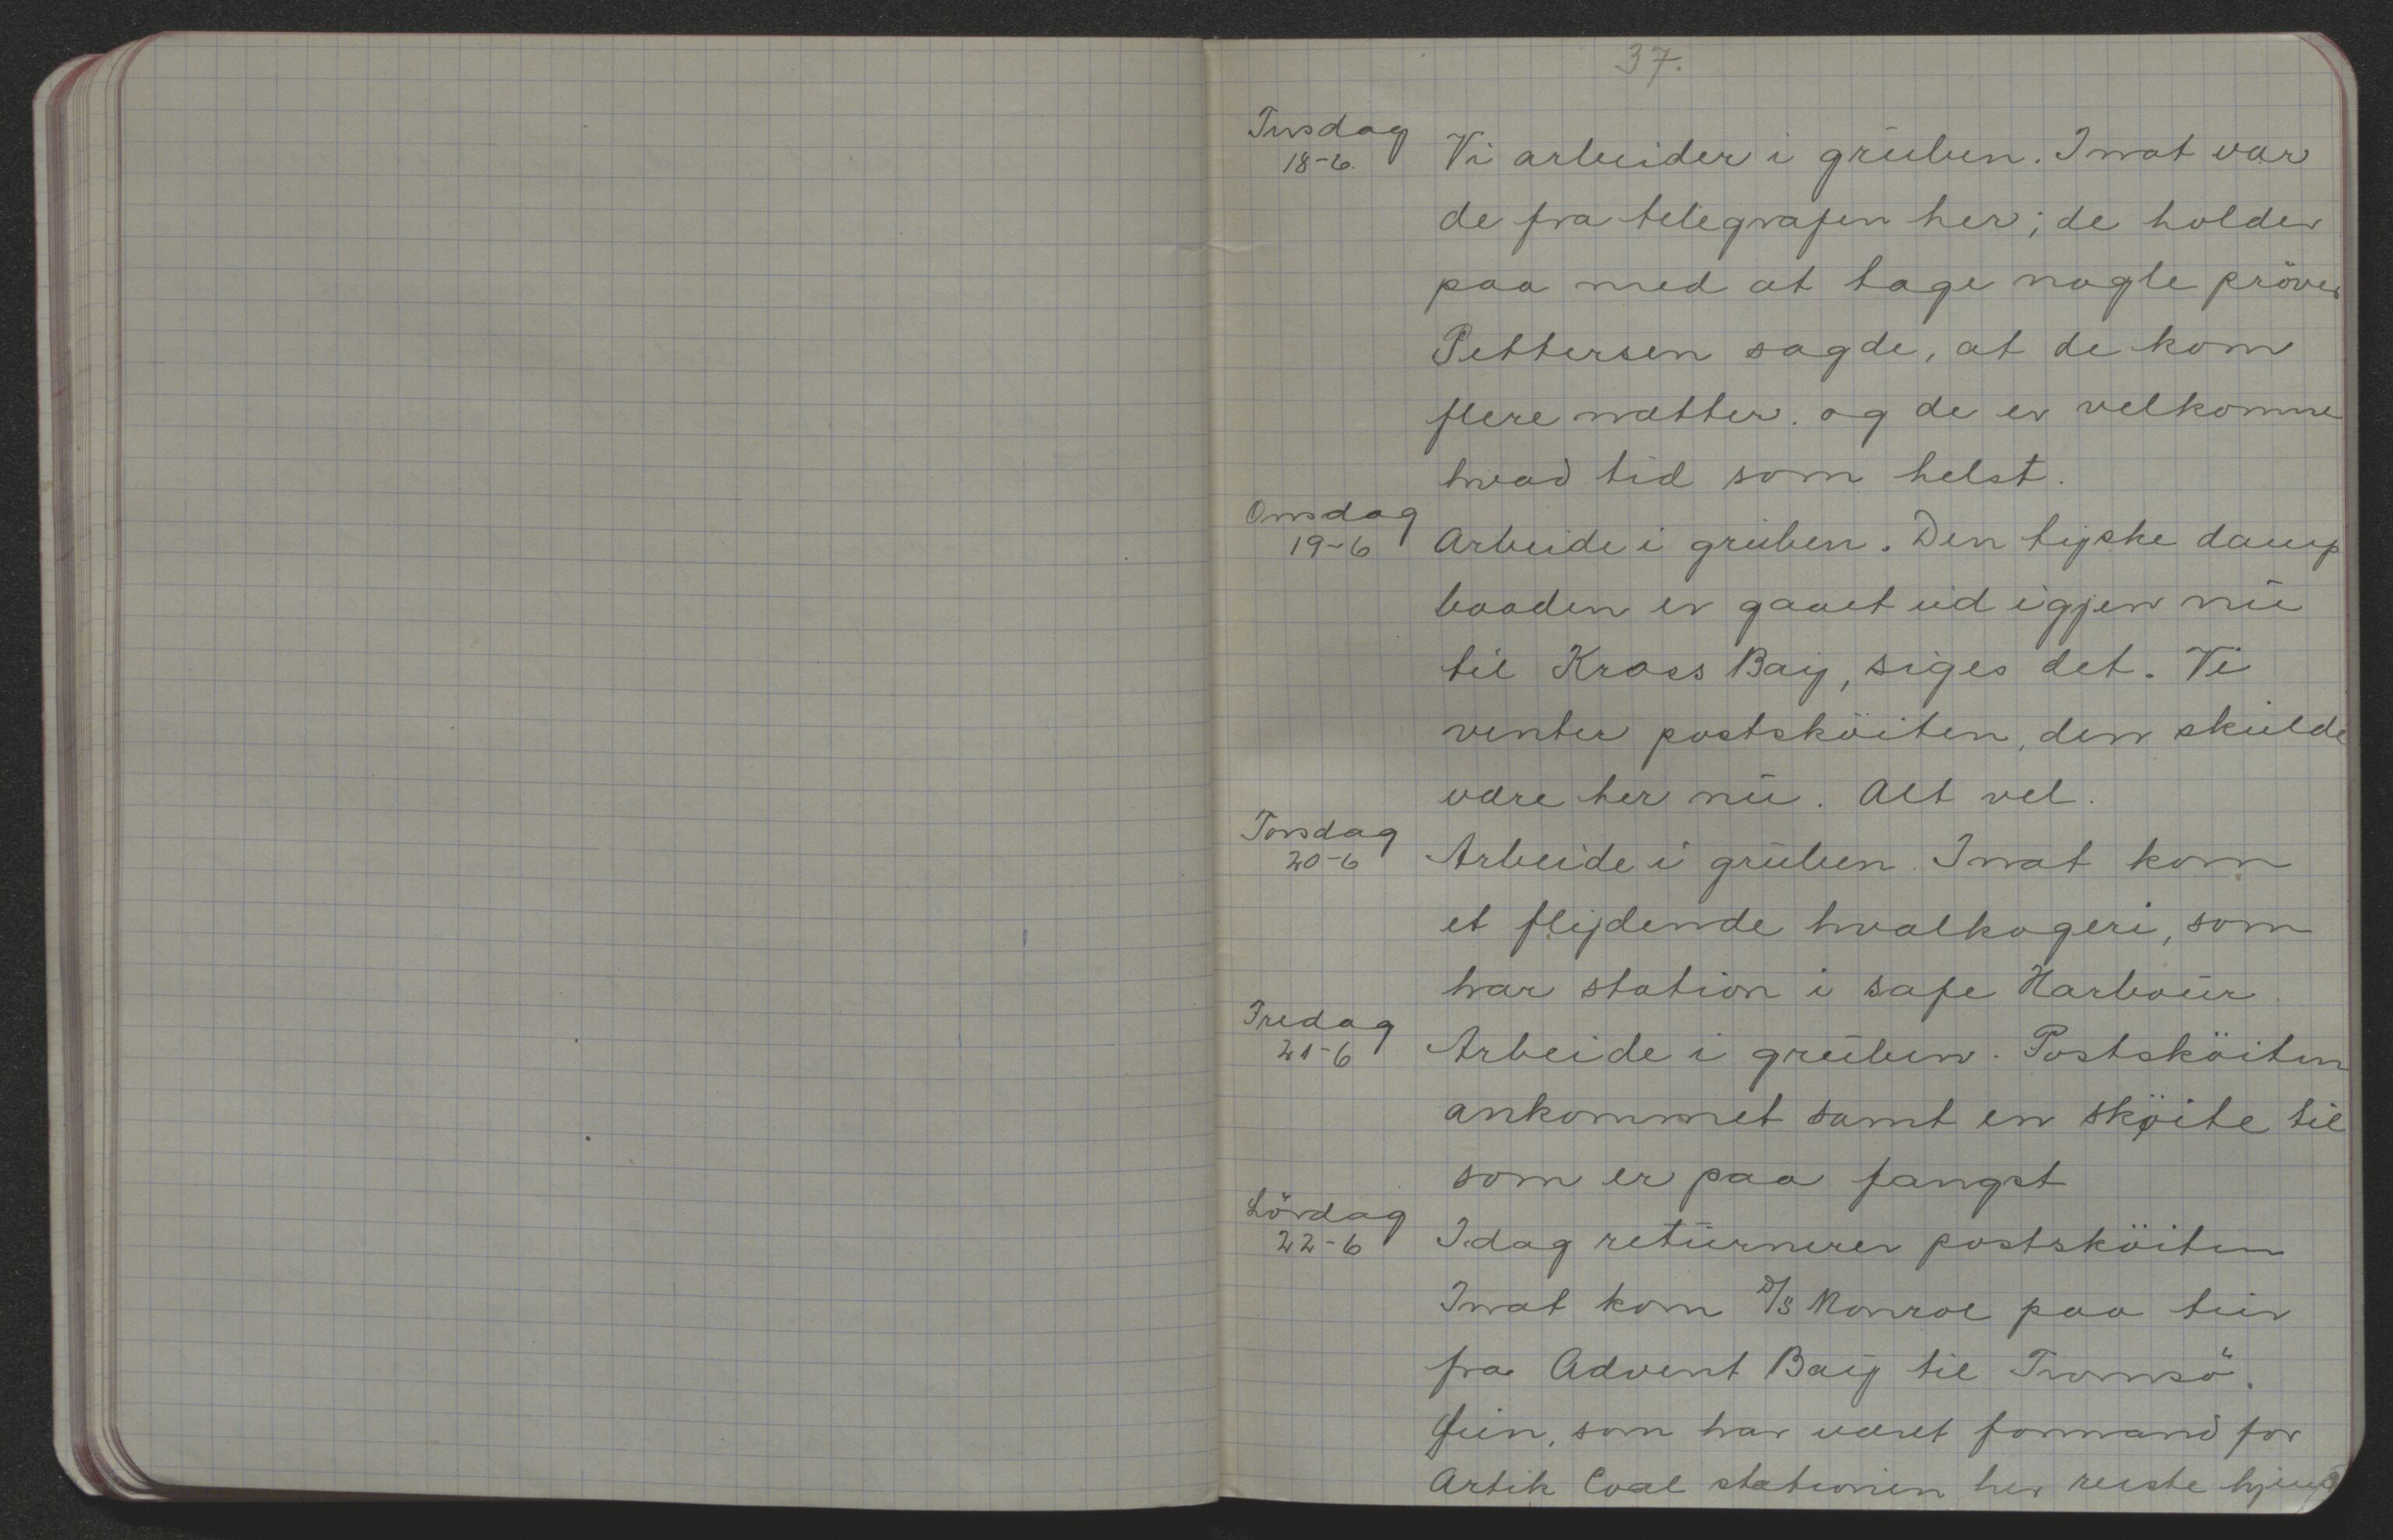 37.
Tirsdag
18-6.
Vi arbeider i grüben. Inat var
de fra telegrafen her; de holder
paa med at tage nogle pröver
Pettersen sagde, at de kom
flere nætter. og de er velkomne
hvad tid som helst.
Onsdag
19-6
Arbeide i grüben. Den tyske damp
baaden er gaaet üd igjen nü
til Kross Bay, siges det. Vi
venter postsköiten, den skülde
være her nü. Alt vel.
Torsdag
20-6
Arbeide i grüben. Inat kom
et flydende hvalkogeri, som
har station i Safe Harboür.
Fredag
21-6
Arbeide i grüben. Postsköiten
ankommet samt en skøite til
som er paa fangst
Lördag
22-6
Idag retürnerer postsköiten
Inat kom D/S Monroe paa tür
fra Advent Bay til Tromsö.
som har været formand for
Artik Coal stationen her reiste hjem